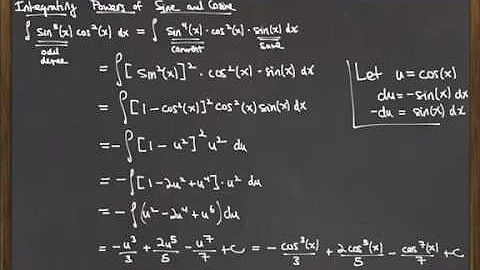 Integrating Powers of Sine and Cosine
∫ sin⁵(x) cos²(x) dx = ∫ sin⁴(x) · cos²(x) · sin(x) dx
odd degree
convert
save
= ∫ [sin²(x)]² · cos²(x) · sin(x) dx
= ∫ [1 - cos²(x)]² cos²(x) sin(x) dx
= -∫ [1 - u²]² u² du
= -∫ [1 - 2u² + u⁴] · u² du
= -∫ (u² - 2u⁴ + u⁶) du
= -u³/3 + 2u⁵/5 - u⁷/7 + C = -cos³(x)/3 + 2cos⁵(x)/5 - cos⁷(x)/7 + C
Let u = cos(x)
du = -sin(x) dx
-du = sin(x) dx